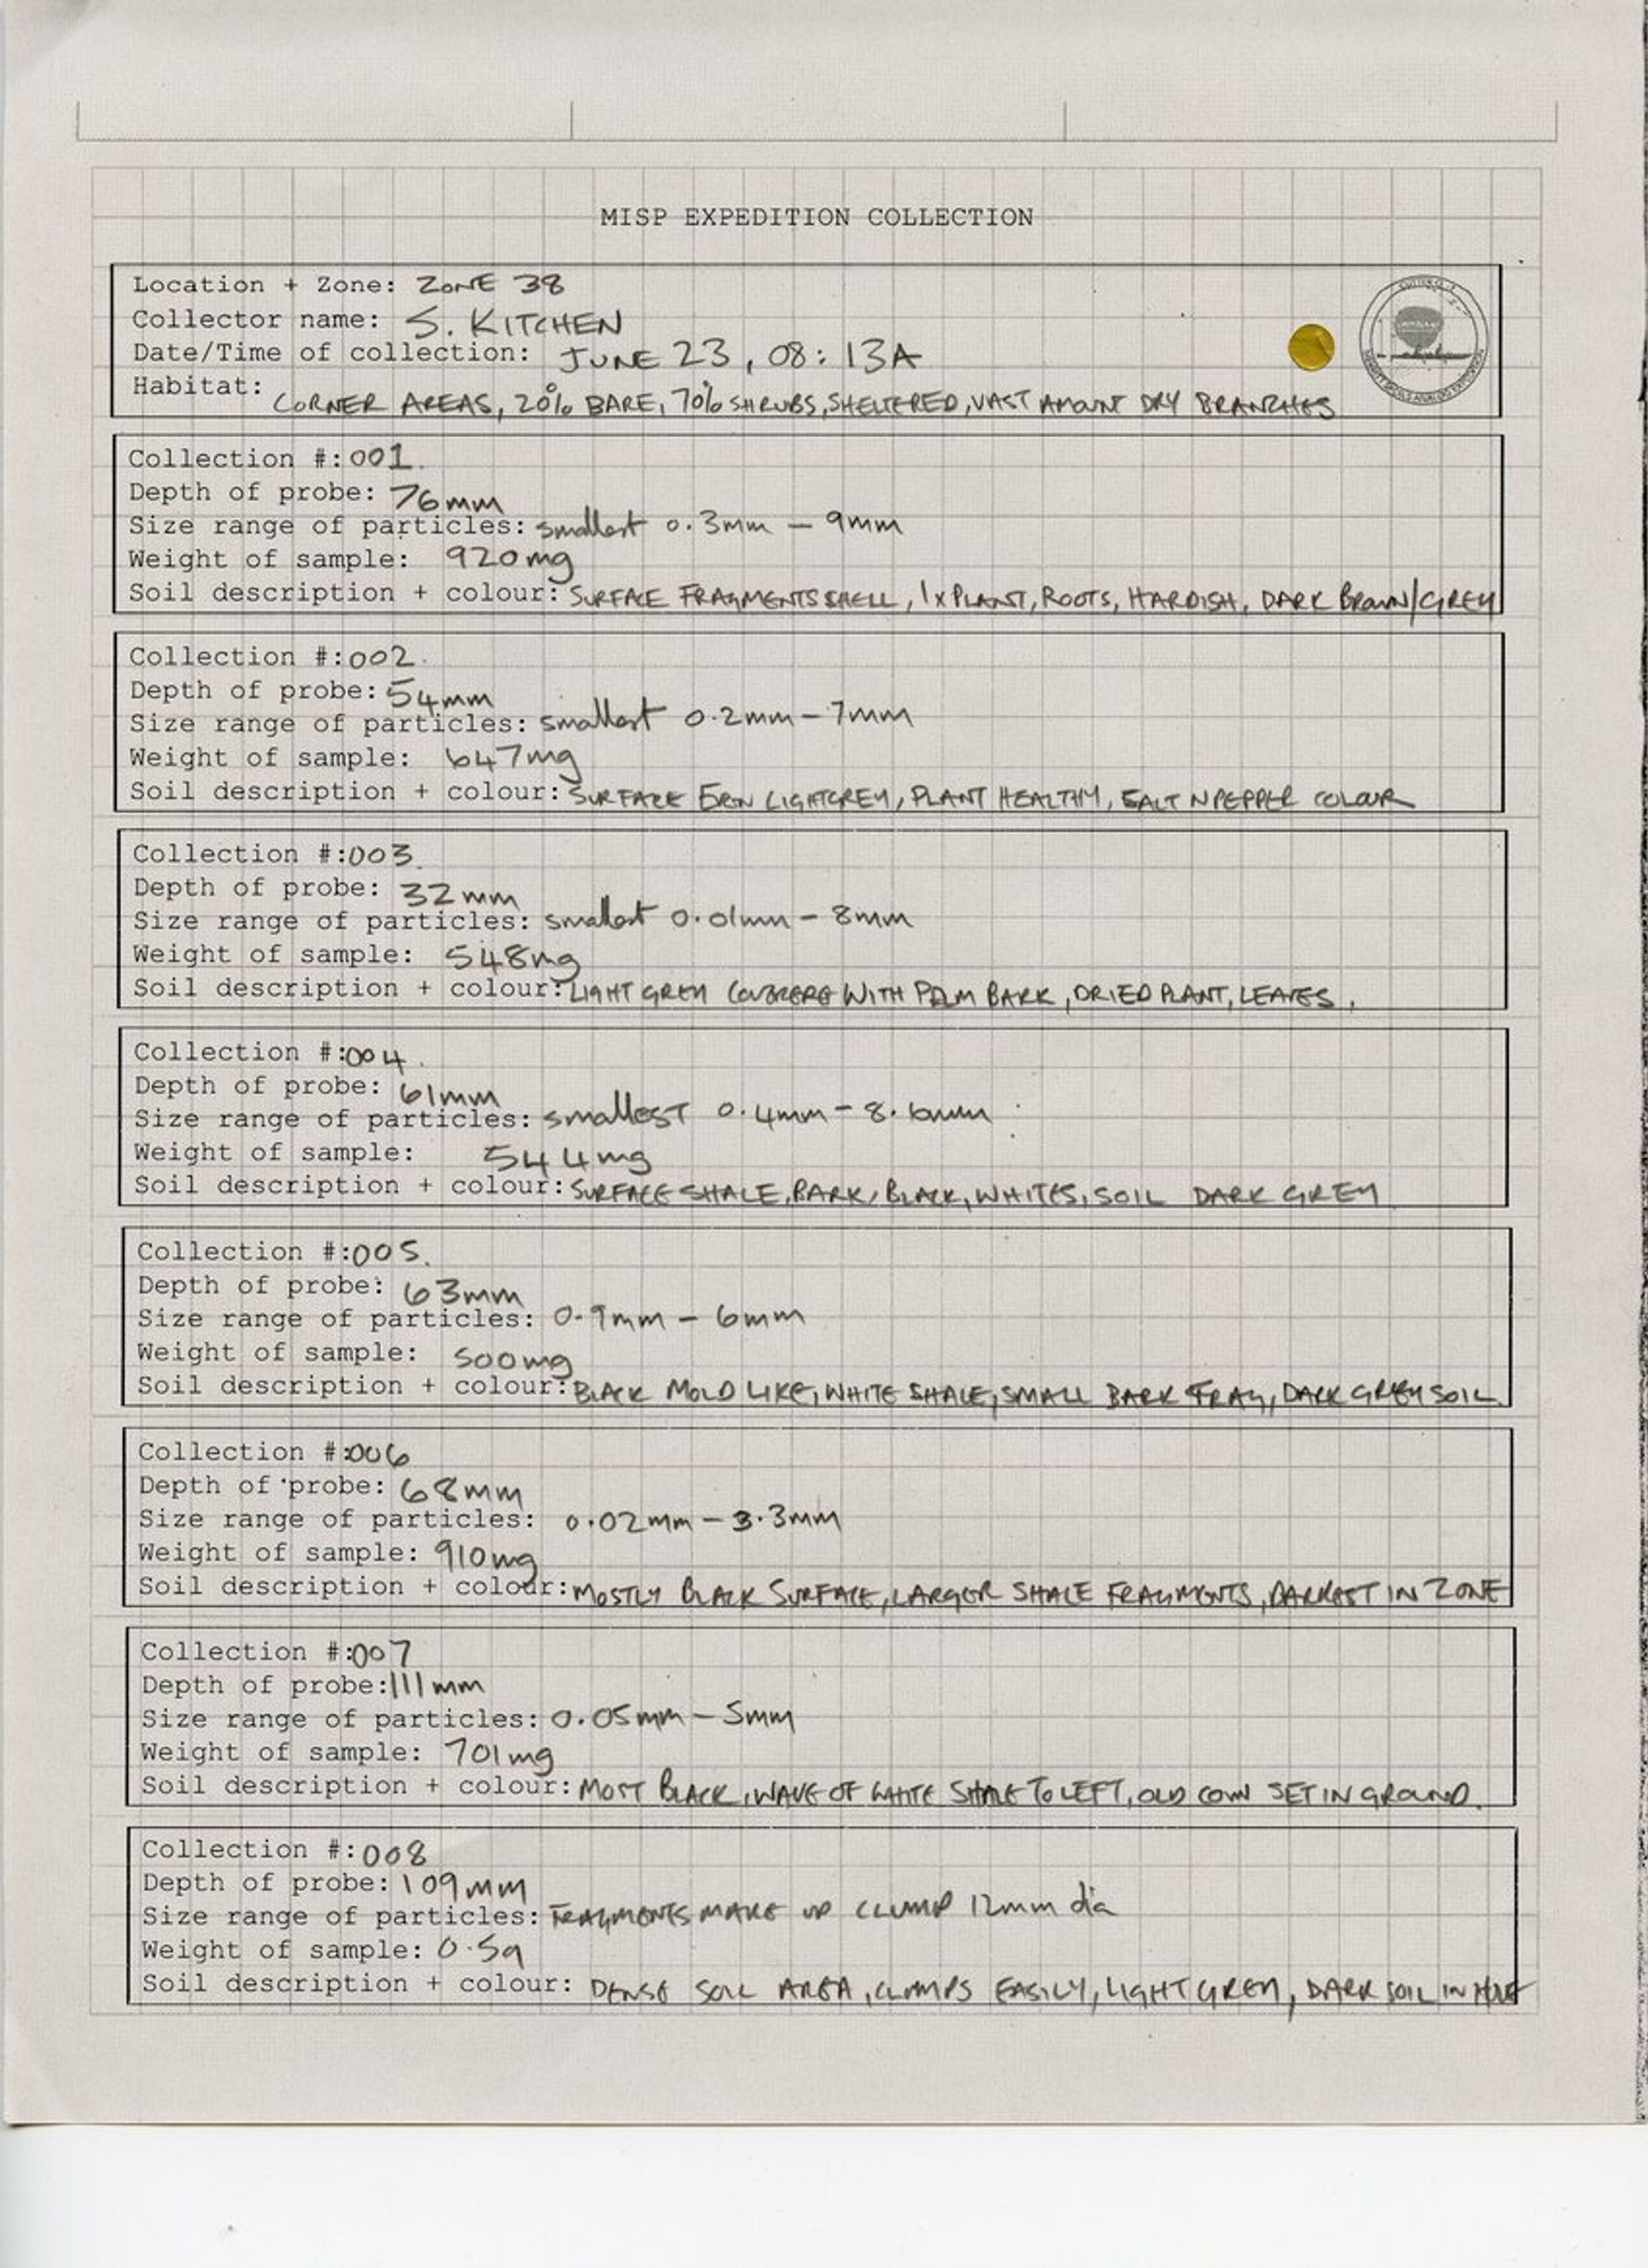 MISP EXPEDITION COLLECTION
Location + Zone: ZONE 38
Collector name: S. KITCHEN
Date/Time of collection: JUNE 23, 08:13A
Habitat: CORNER AREAS, 20% BARE, 70% SHRUBS, SHELTERED, VAST AMOUNT DRY BRANCHES
Collection #: 001.
Depth of probe: 76mm
Size range of particles: smallest 0.3mm - 9mm
Weight of sample: 920mg
Soil description + colour: SURFACE FRAGMENTS SHELL, 1x PLANT, ROOTS, HARDISH, DARK BROWN/GREY
Collection #: 002.
Depth of probe: 54mm
Size range of particles: smallest 0.2mm - 7mm
Weight of sample: 647mg
Soil description + colour: SURFACE LIGHT GREY, PLANT HEALTHY, SALT N PEPPER COLOUR
Collection #: 003.
Depth of probe: 32mm
Size range of particles: smallest 0.01mm - 8mm
Weight of sample: 548mg
Soil description + colour: LIGHT GREY WITH PALM BARK, DRIED PLANT, LEAVES.
Collection #: 004.
Depth of probe: 61mm
Size range of particles: smallest 0.4mm - 8.6mm
Weight of sample: 544mg
Soil description + colour: SURFACE SHALE, BARK, BLACK, WHITES, SOIL DARK GREY
Collection #: 005.
Depth of probe: 63mm
Size range of particles: 0.9mm - 6mm
Weight of sample: 500mg
Soil description + colour: BLACK MOLD LIKE, WHITE SHALE, SMALL BARK FRAG, DARK GREY SOIL
Collection #: 006
Depth of probe: 68mm
Size range of particles: 0.02mm - 3.3mm
Weight of sample: 910mg
Soil description + colour: MOSTLY BLACK SURFACE, LARGER SHALE FRAGMENTS, DARKEST IN ZONE
Collection #: 007
Depth of probe: 111mm
Size range of particles: 0.05mm - 5mm
Weight of sample: 701mg
Soil description + colour: MOST BLACK, WAVE OF WHITE SHALE TO LEFT, OLD COIN SET IN GROUND.
Collection #: 008
Depth of probe: 109mm
Size range of particles: FRAGMENTS MAKE UP CLUMP 12mm dia
Weight of sample: 0.5g
Soil description + colour: DENSE SOIL AREA, CLUMPS EASILY, LIGHT GREY, DARK SOIL IN HOLE